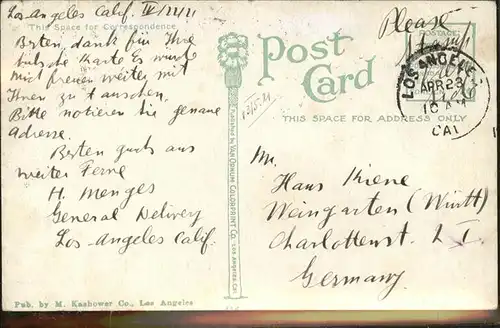 Los-Angeles Calif. IV/22/11
This Space for Correspondence
Besten, dank für Ihre
hübsche Karte Es würde
mich freuen weiter mit
Ihnen zu tauschen,
Bitte notieren Sie genaue
Adresse.
Besten Gruss aus
weiter Ferne
H. Menges
General Delivery
Los-Angeles Calif.
Pub. by M. Kashower Co., Los Angeles
Published by VAN ORNUM COLORPRINT CO. Los Angeles, Cal.
Post
Card
THIS SPACE FOR ADDRESS ONLY
Please
Stamp
LOS ANGELES
APR 23
10 AM
CAL
Mr.
Hans Kiene
Weingarten (Württ)
Charlottenstr. 
Germany